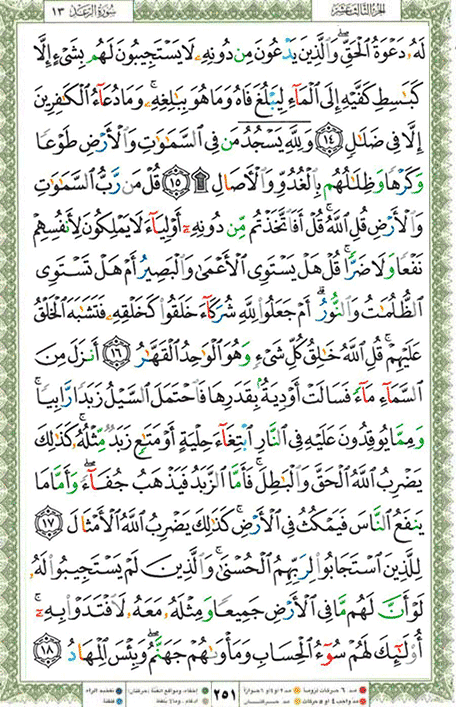 الجزء الثالث عشر
سورة الرعد ١٣
لَهُۥ دَعْوَةُ ٱلْحَقِّۖ وَٱلَّذِينَ يَدْعُونَ مِن دُونِهِۦ لَا يَسْتَجِيبُونَ لَهُم بِشَىْءٍ إِلَّا
كَبَٰسِطِ كَفَّيْهِ إِلَى ٱلْمَآءِ لِيَبْلُغَ فَاهُ وَمَا هُوَ بِبَٰلِغِهِۦۚ وَمَا دُعَآءُ ٱلْكَٰفِرِينَ
إِلَّا فِى ضَلَٰلٍ ١٤ وَلِلَّهِ يَسْجُدُ مَن فِى ٱلسَّمَٰوَٰتِ وَٱلْأَرْضِ طَوْعًا
وَكَرْهًا وَظِلَٰلُهُم بِٱلْغُدُوِّ وَٱلْءَاصَالِ ۩ ١٥ قُلْ مَن رَّبُّ ٱلسَّمَٰوَٰتِ
وَٱلْأَرْضِ قُلِ ٱللَّهُۚ قُلْ أَفَٱتَّخَذْتُم مِّن دُونِهِۦٓ أَوْلِيَآءَ لَا يَمْلِكُونَ لِأَنفُسِهِمْ
نَفْعًا وَلَا ضَرًّاۚ قُلْ هَلْ يَسْتَوِى ٱلْأَعْمَىٰ وَٱلْبَصِيرُ أَمْ هَلْ تَسْتَوِى
ٱلظُّلُمَٰتُ وَٱلنُّورُۗ أَمْ جَعَلُوا۟ لِلَّهِ شُرَكَآءَ خَلَقُوا۟ كَخَلْقِهِۦ فَتَشَٰبَهَ ٱلْخَلْقُ
عَلَيْهِمْۚ قُلِ ٱللَّهُ خَٰلِقُ كُلِّ شَىْءٍ وَهُوَ ٱلْوَٰحِدُ ٱلْقَهَّٰرُ ١٦ أَنزَلَ مِنَ
ٱلسَّمَآءِ مَآءً فَسَالَتْ أَوْدِيَةٌۢ بِقَدَرِهَا فَٱحْتَمَلَ ٱلسَّيْلُ زَبَدًا رَّابِيًاۚ
وَمِمَّا يُوقِدُونَ عَلَيْهِ فِى ٱلنَّارِ ٱبْتِغَآءَ حِلْيَةٍ أَوْ مَتَٰعٍ زَبَدٌ مِّثْلُهُۥۚ كَذَٰلِكَ
يَضْرِبُ ٱللَّهُ ٱلْحَقَّ وَٱلْبَٰطِلَۚ فَأَمَّا ٱلزَّبَدُ فَيَذْهَبُ جُفَآءًۖ وَأَمَّا مَا
يَنفَعُ ٱلنَّاسَ فَيَمْكُثُ فِى ٱلْأَرْضِۚ كَذَٰلِكَ يَضْرِبُ ٱللَّهُ ٱلْأَمْثَالَ ١٧
لِلَّذِينَ ٱسْتَجَابُوا۟ لِرَبِّهِمُ ٱلْحُسْنَىٰۚ وَٱلَّذِينَ لَمْ يَسْتَجِيبُوا۟ لَهُۥ
لَوْ أَنَّ لَهُم مَّا فِى ٱلْأَرْضِ جَمِيعًا وَمِثْلَهُۥ مَعَهُۥ لَٱفْتَدَوْا۟ بِهِۦٓۚ
أُو۟لَٰٓئِكَ لَهُمْ سُوٓءُ ٱلْحِسَابِ وَمَأْوَىٰهُمْ جَهَنَّمُۖ وَبِئْسَ ٱلْمِهَادُ ١٨
٢٥١